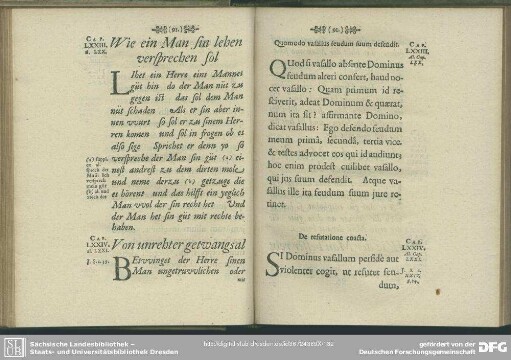 (91.)
CAP.
LXXIII.
al. LXX.
Wie ein Man sin lehen
versprechen sol
Lihet ein Herre eins Mannes
gůt hin do der Man nůt zu
gegen ist das sol dem Man
nůt schaden Als er sin aber in-
nen wurt so sol er zu sinem Her-
ren komen und sol in frogen ob et
also sige Sprichet er denn yo so
verspreche der Man sin gůt (a) ei-
nest andrest zu dem dirten mole
und neme derzu getzuge die
es hörent und das hilfft ein yeglich
Man wol der sin recht het Und
der Man het sin gůt mit rechte be-
haben.
CAP.
LXXIV.
al. LXXI.
Von unrehter getwangsal
BEtwinget der Herre sinen
Man ungetruwlichen oder
(92.)
Quomodo vasallus feudum suum defendit.
CAP.
LXXIII.
Al. Cap.
LXX.
QUod si vasallo absente Dominus
feudum alteri confert, haud no-
cet vasallo: Quam primum id re-
sciverit, adeat Dominum & quærat,
num ita sit? affirmante Domino,
dicat vasallus: Ego defendo feudum
meum primâ, secundâ, tertia vice
& testes advocet eos qui id audiunt;
hoc enim prodest cuilibet vasallo,
qui jus suum defendit. Atque va-
sallus ille ita feudum suum jure re-
tinet.
De refutatione coacta.
CAP.
LXXIV.
Al. Cap.
LXXI.
SI Dominus vasallum perfidè aut
violenter cogit, ut refutet feu-
dum,
Sächsische Landesbibliothek –
Staats- und Universitätsbibliothek Dresden
gefördert von der
Deutschen Forschungsgemeinschaft
DFG